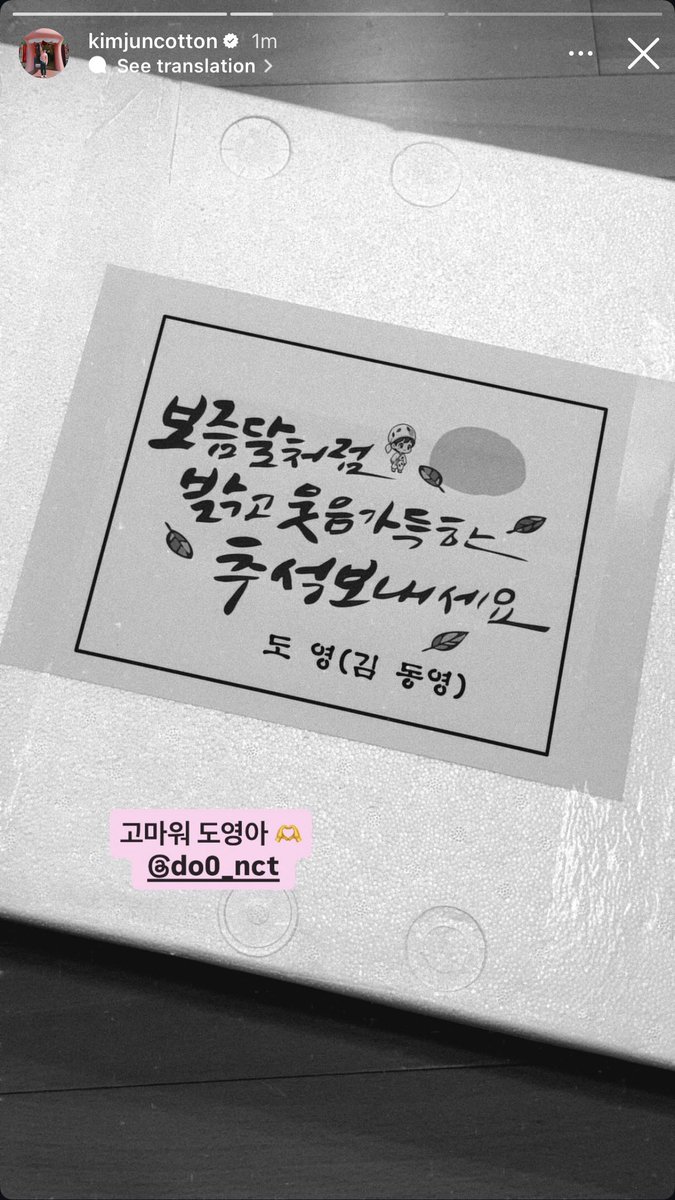 kimjuncotton 1m
See translation
보름달처럼
밝고 웃음가득한
추석보내세요
도 영(김 동영)
고마워 도영아 🫶
@do0_nct